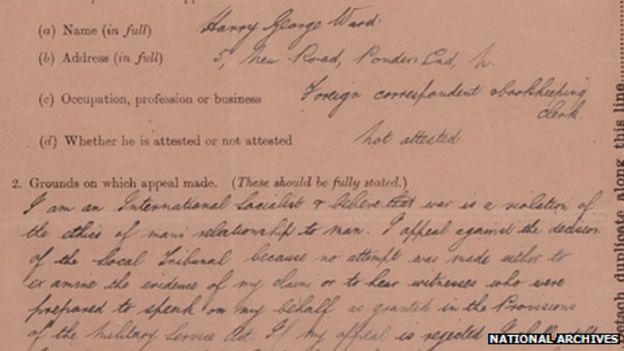 (a) Name (in full) Harry George Ward.
(b) Address (in full) 5, New Road, Ponders End, N.
(c) Occupation, profession or business Foreign correspondent & bookkeeping
clerk
(d) Whether he is attested or not attested not attested.
2. Grounds on which appeal made. (These should be fully stated.)
I am an International Socialist & believe that war is a violation of
the ethics of mans relationship to man. I appeal against the decision
of the Local Tribunal because no attempt was made either to
examine the evidence of my claim or to hear witnesses who were
prepared to speak on my behalf as granted in the Provisions
of the Military Service Act If my appeal is rejected I
etach duplicate along this line
NATIONAL ARCHIVES